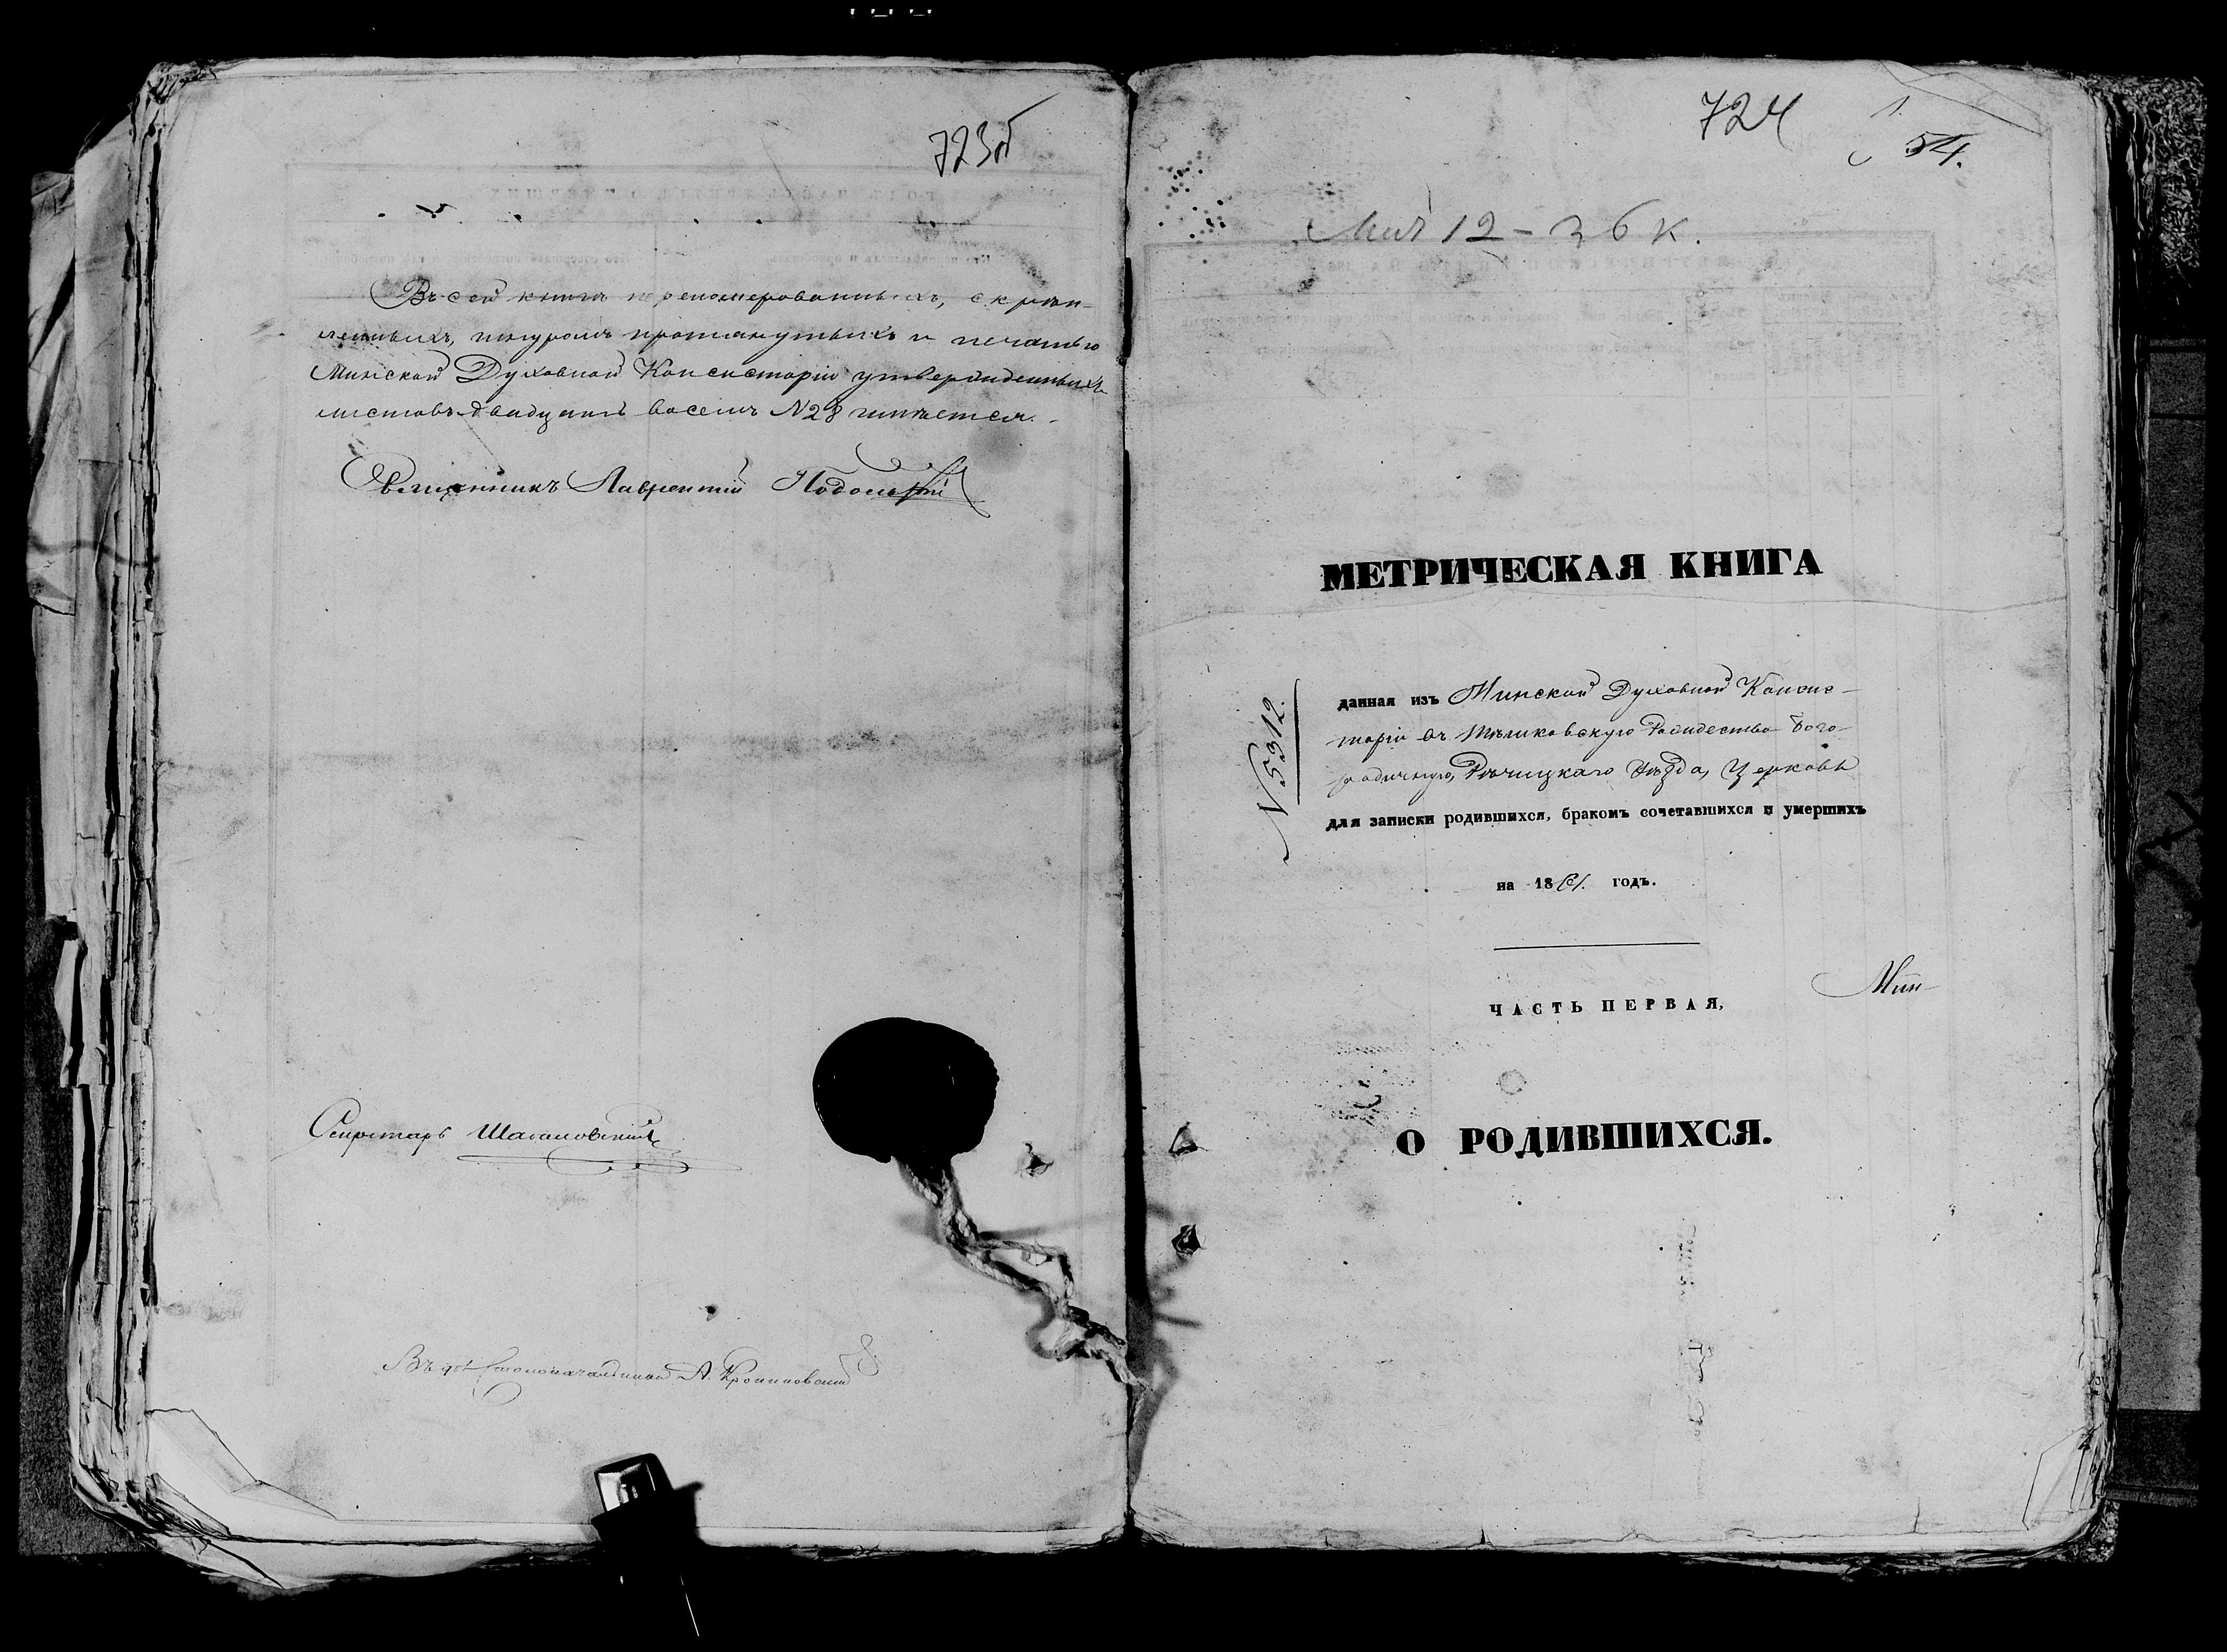 723об
Въ сей книгѣ перенумерованныхъ, скрѣп-
ленныхъ, шнуромъ протянутыхъ и печатью
Минской Духовной Консисторіи утвержденныхъ
листовъ двадцать восемь N28 числится.
Священникъ Лаврентій
Секретарь
Столоначальника А.
724
1.
54.
12 - 36 к.
МЕТРИЧЕСКАЯ КНИГА
N 5312.
данная изъ Минской Духовной Консис-
торіи въ Рождество Бого-
родичную, Рѣчицкаго Уѣзда, Церковь
для записки родившихся, бракомъ сочетавшихся и умершихъ
на 1861. годъ.
Мин-
ЧАСТЬ ПЕРВАЯ,
О РОДИВШИХСЯ.